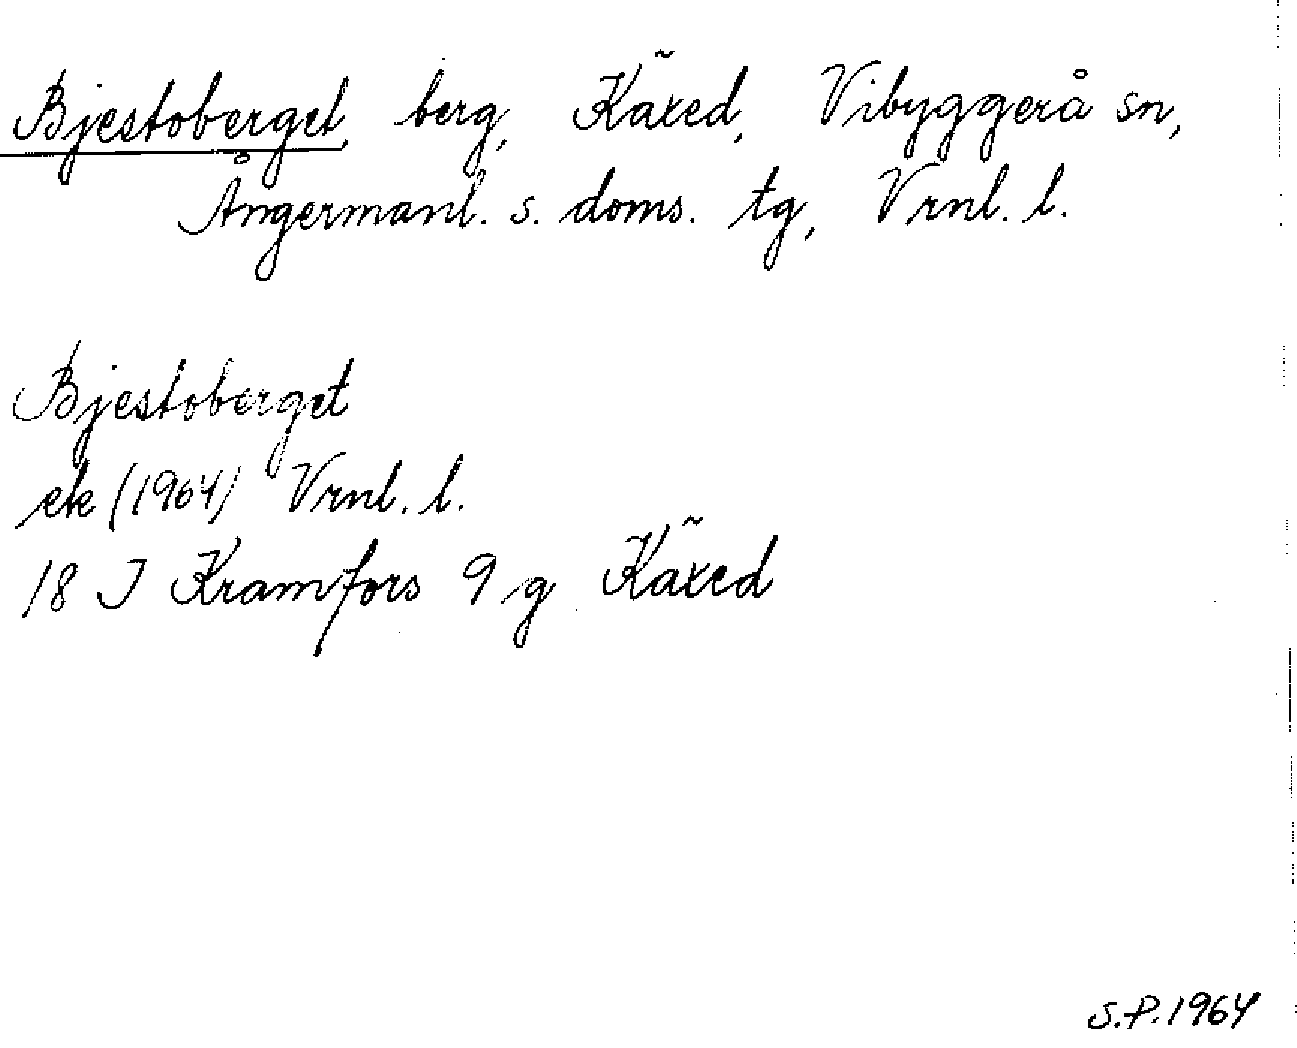 Bjestoberget, berg, Käxed, Vibyggerå sn,
Ångermanl. s. doms. tg, Vrnl. l.
Bjestoberget
ek (1964) Vrnl. l.
18 I Kramfors 9 g Käxed
S.P. 1964